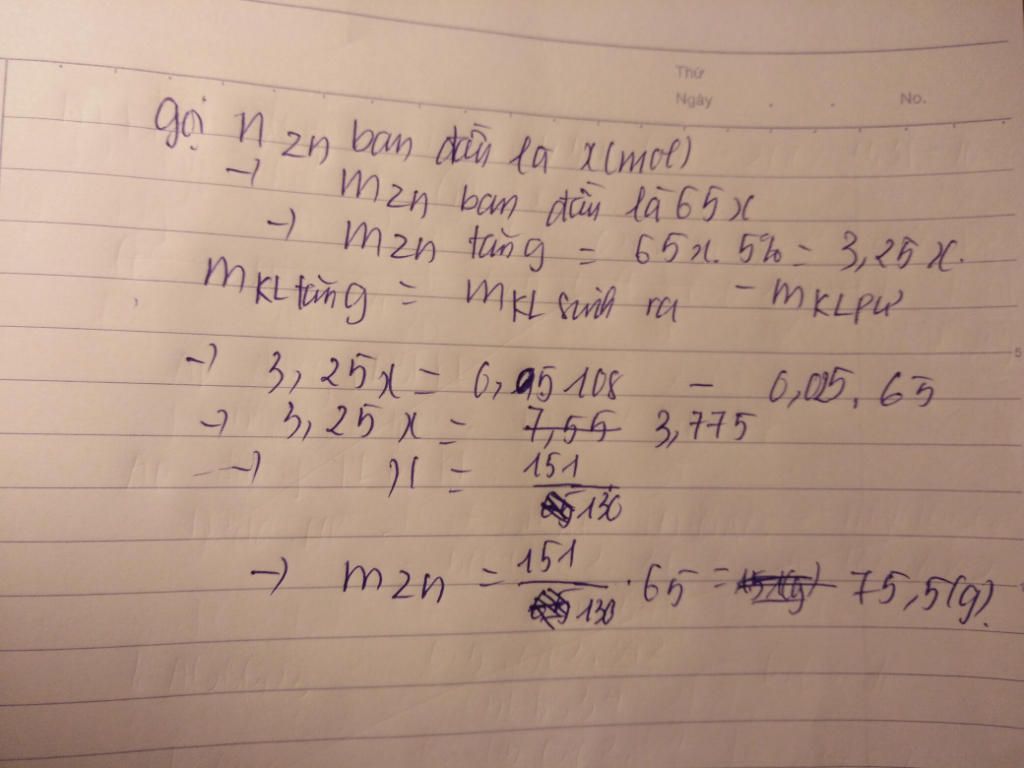 Thứ
Ngày . . No.
gọi n Zn ban đầu là x(mol)
→ m Zn ban đầu là 65x
→ m Zn tăng = 65x.5% = 3,25x.
m KL tăng = m KL sinh ra - m KL pư
→ 3,25x = 0,05 108 - 0,025.65
→ 3,25x = 7,55 3,775
→ x = 151/130
→ m Zn = 151/130 . 65 = 75,5(g)
5